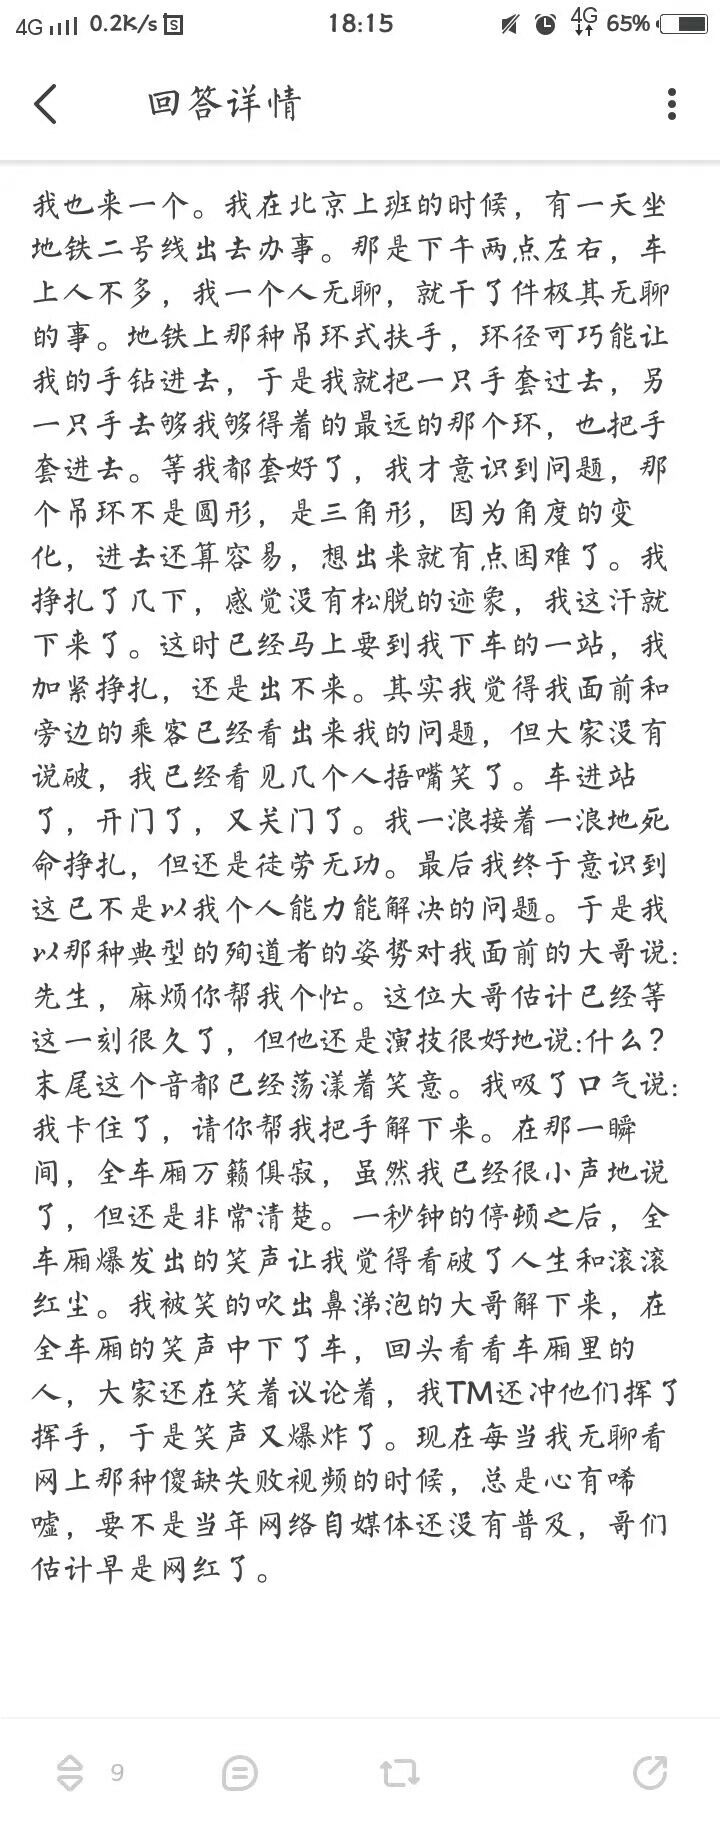 4G 0.2K/s 18:15 4G 65%
回答详情
我也来一个。我在北京上班的时候，有一天坐
地铁二号线出去办事。那是下午两点左右，车
上人不多，我一个人无聊，就干了件极其无聊
的事。地铁上那种吊环式扶手，环径可巧能让
我的手钻进去，于是我就把一只手套过去，另
一只手去够我够得着的最远的那个环，也把手
套进去。等我都套好了，我才意识到问题，那
个吊环不是圆形，是三角形，因为角度的变
化，进去还算容易，想出来就有点困难了。我
挣扎了几下，感觉没有松脱的迹象，我这汗就
下来了。这时已经马上要到我下车的一站，我
加紧挣扎，还是出不来。其实我觉得我面前和
旁边的乘客已经看出来我的问题，但大家没有
说破，我已经看见几个人捂嘴笑了。车进站
了，开门了，又关门了。我一浪接着一浪地死
命挣扎，但还是徒劳无功。最后我终于意识到
这已不是以我个人能力能解决的问题。于是我
以那种典型的殉道者的姿势对我面前的大哥说:
先生，麻烦你帮我个忙。这位大哥估计已经等
这一刻很久了，但他还是演技很好地说:什么?
末尾这个音都已经荡漾着笑意。我吸了口气说:
我卡住了，请你帮我把手解下来。在那一瞬
间，全车厢万籁俱寂，虽然我已经很小声地说
了，但还是非常清楚。一秒钟的停顿之后，全
车厢爆发出的笑声让我觉得看破了人生和滚滚
红尘。我被笑的吹出鼻涕泡的大哥解下来，在
全车厢的笑声中下了车，回头看看车厢里的
人，大家还在笑着议论着，我TM还冲他们挥了
挥手，于是笑声又爆炸了。现在每当我无聊看
网上那种傻缺失败视频的时候，总是心有唏
嘘，要不是当年网络自媒体还没有普及，哥们
估计早是网红了。
9